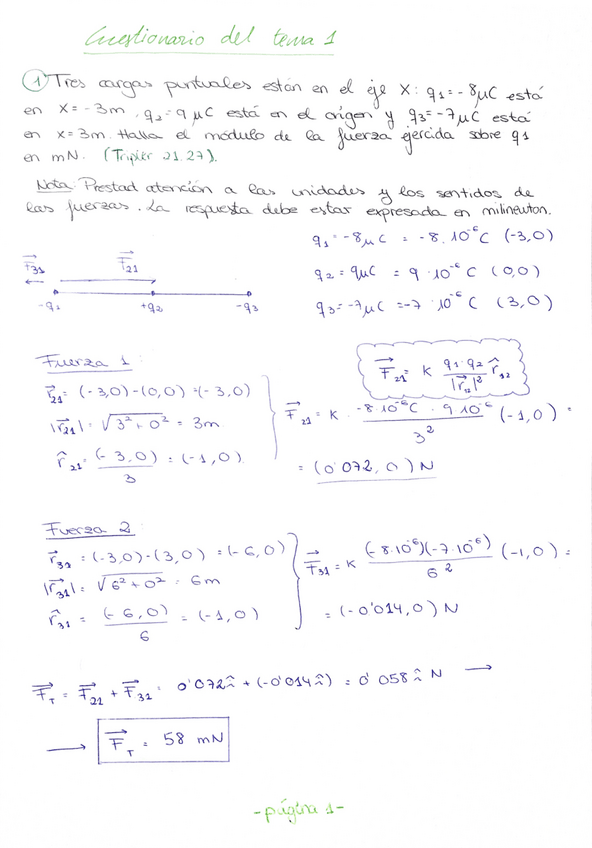 Cuestionario del tema 1
① Tres cargas puntuales están en el eje X: q1=-8μC está
en x=-3m, q2=9μC está en el origen y q3=-7μC está
en x=3m. Halla el módulo de la fuerza ejercida sobre q1
en mN. (Tripler 21.27).
Nota: Prestad atención a las unidades y los sentidos de
las fuerzas. La respuesta debe estar expresada en milineuton.
q1=-8μC = -8·10⁻⁶C (-3,0)
q2=9μC = 9·10⁻⁶C (0,0)
q3=-7μC =-7·10⁻⁶C (3,0)
F⃗31 F⃗21
-q1 +q2 -q3
Fuerza 1:
F⃗21= K q1·q2/|r⃗12|² r̂12
r⃗21= (-3,0)-(0,0)=(-3,0)
|r⃗21|= √3²+0² = 3m
r̂21= (-3,0)/3 = (-1,0)
F⃗21= K· -8·10⁻⁶C · 9·10⁻⁶/3² (-1,0) =
= (0'072,0) N
Fuerza 2:
r⃗31=(-3,0)-(3,0)=(-6,0)
|r⃗31|= √6²+0² = 6m
r̂31= (-6,0)/6 = (-1,0)
F⃗31= K (-8·10⁻⁶)(-7·10⁻⁶)/6² (-1,0) =
= (-0'014,0) N
F⃗T = F⃗21 + F⃗31 = 0'072î + (-0'014î) = 0'058 î N →
→ F⃗T = 58 mN
-página 1-